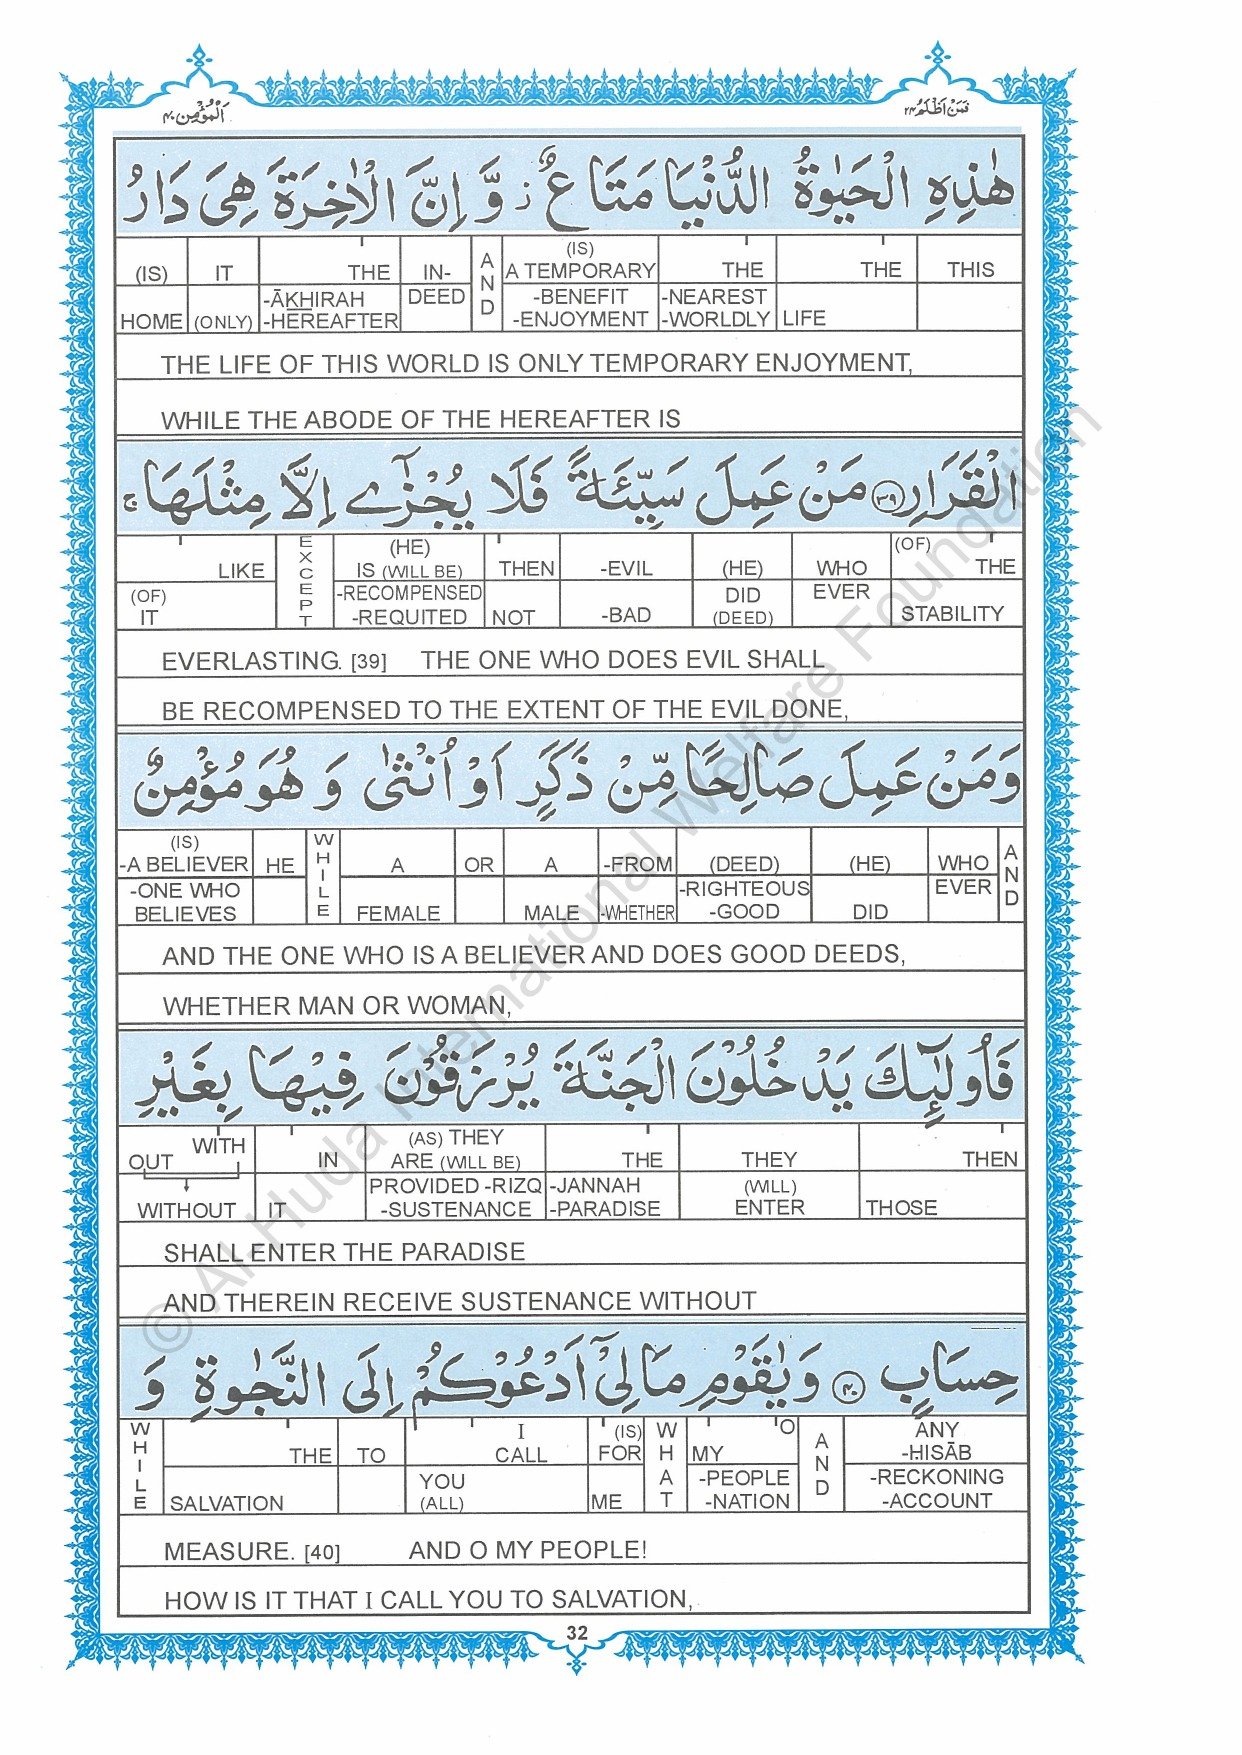 اَلْمُؤْمِن ٤٠ فَمَنْ اَظْلَمُ ٢٤
هٰذِهِ الْحَيٰوةُ الدُّنْيَا مَتَاعٌ ز وَّ اِنَّ الْاٰخِرَةَ هِىَ دَارُ
(IS) IT THE IN- AND (IS) A TEMPORARY THE THE THIS
HOME (ONLY) -ĀKHIRAH -HEREAFTER DEED -BENEFIT -ENJOYMENT -NEAREST -WORLDLY LIFE
THE LIFE OF THIS WORLD IS ONLY TEMPORARY ENJOYMENT,
WHILE THE ABODE OF THE HEREAFTER IS
الْقَرَارِ ٣٩ مَنْ عَمِلَ سَيِّئَةً فَلَا يُجْزٰٓى اِلَّا مِثْلَهَا ج
LIKE EXCEPT (HE) IS (WILL BE) THEN -EVIL (HE) WHO (OF) THE
(OF) IT -RECOMPENSED -REQUITED NOT -BAD DID (DEED) EVER STABILITY
EVERLASTING. [39] THE ONE WHO DOES EVIL SHALL
BE RECOMPENSED TO THE EXTENT OF THE EVIL DONE,
وَمَنْ عَمِلَ صَالِحًا مِّنْ ذَكَرٍ اَوْ اُنْثٰى وَ هُوَ مُؤْمِنٌ
(IS) -A BELIEVER HE WHILE A OR A -FROM (DEED) (HE) WHO AND
-ONE WHO BELIEVES FEMALE MALE -WHETHER -RIGHTEOUS -GOOD DID EVER
AND THE ONE WHO IS A BELIEVER AND DOES GOOD DEEDS,
WHETHER MAN OR WOMAN,
فَاُولٰٓئِكَ يَدْخُلُوْنَ الْجَنَّةَ يُرْزَقُوْنَ فِيْهَا بِغَيْرِ
OUT WITH IN (AS) THEY ARE (WILL BE) THE THEY THEN
WITHOUT IT PROVIDED -RIZQ -SUSTENANCE -JANNAH -PARADISE (WILL) ENTER THOSE
SHALL ENTER THE PARADISE
AND THEREIN RECEIVE SUSTENANCE WITHOUT
حِسَابٍ ٤٠ وَيٰقَوْمِ مَا لِىْٓ اَدْعُوْكُمْ اِلَى النَّجٰوةِ وَ
WHILE THE TO I CALL (IS) FOR WHAT MY O AND ANY -ḤISĀB
SALVATION YOU (ALL) ME -PEOPLE -NATION -RECKONING -ACCOUNT
MEASURE. [40] AND O MY PEOPLE!
HOW IS IT THAT I CALL YOU TO SALVATION,
32
© Al-Huda International Welfare Foundation